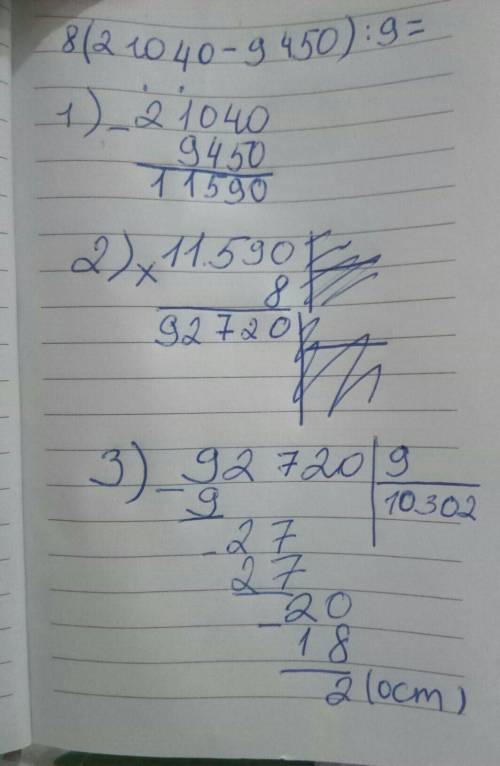 8(21040-9450):9=
1) - 21040
9450
11590
2) x 11590
8
92720
3) - 92720 | 9
9 10302
- 27
27
- 20
18
2 (ост)